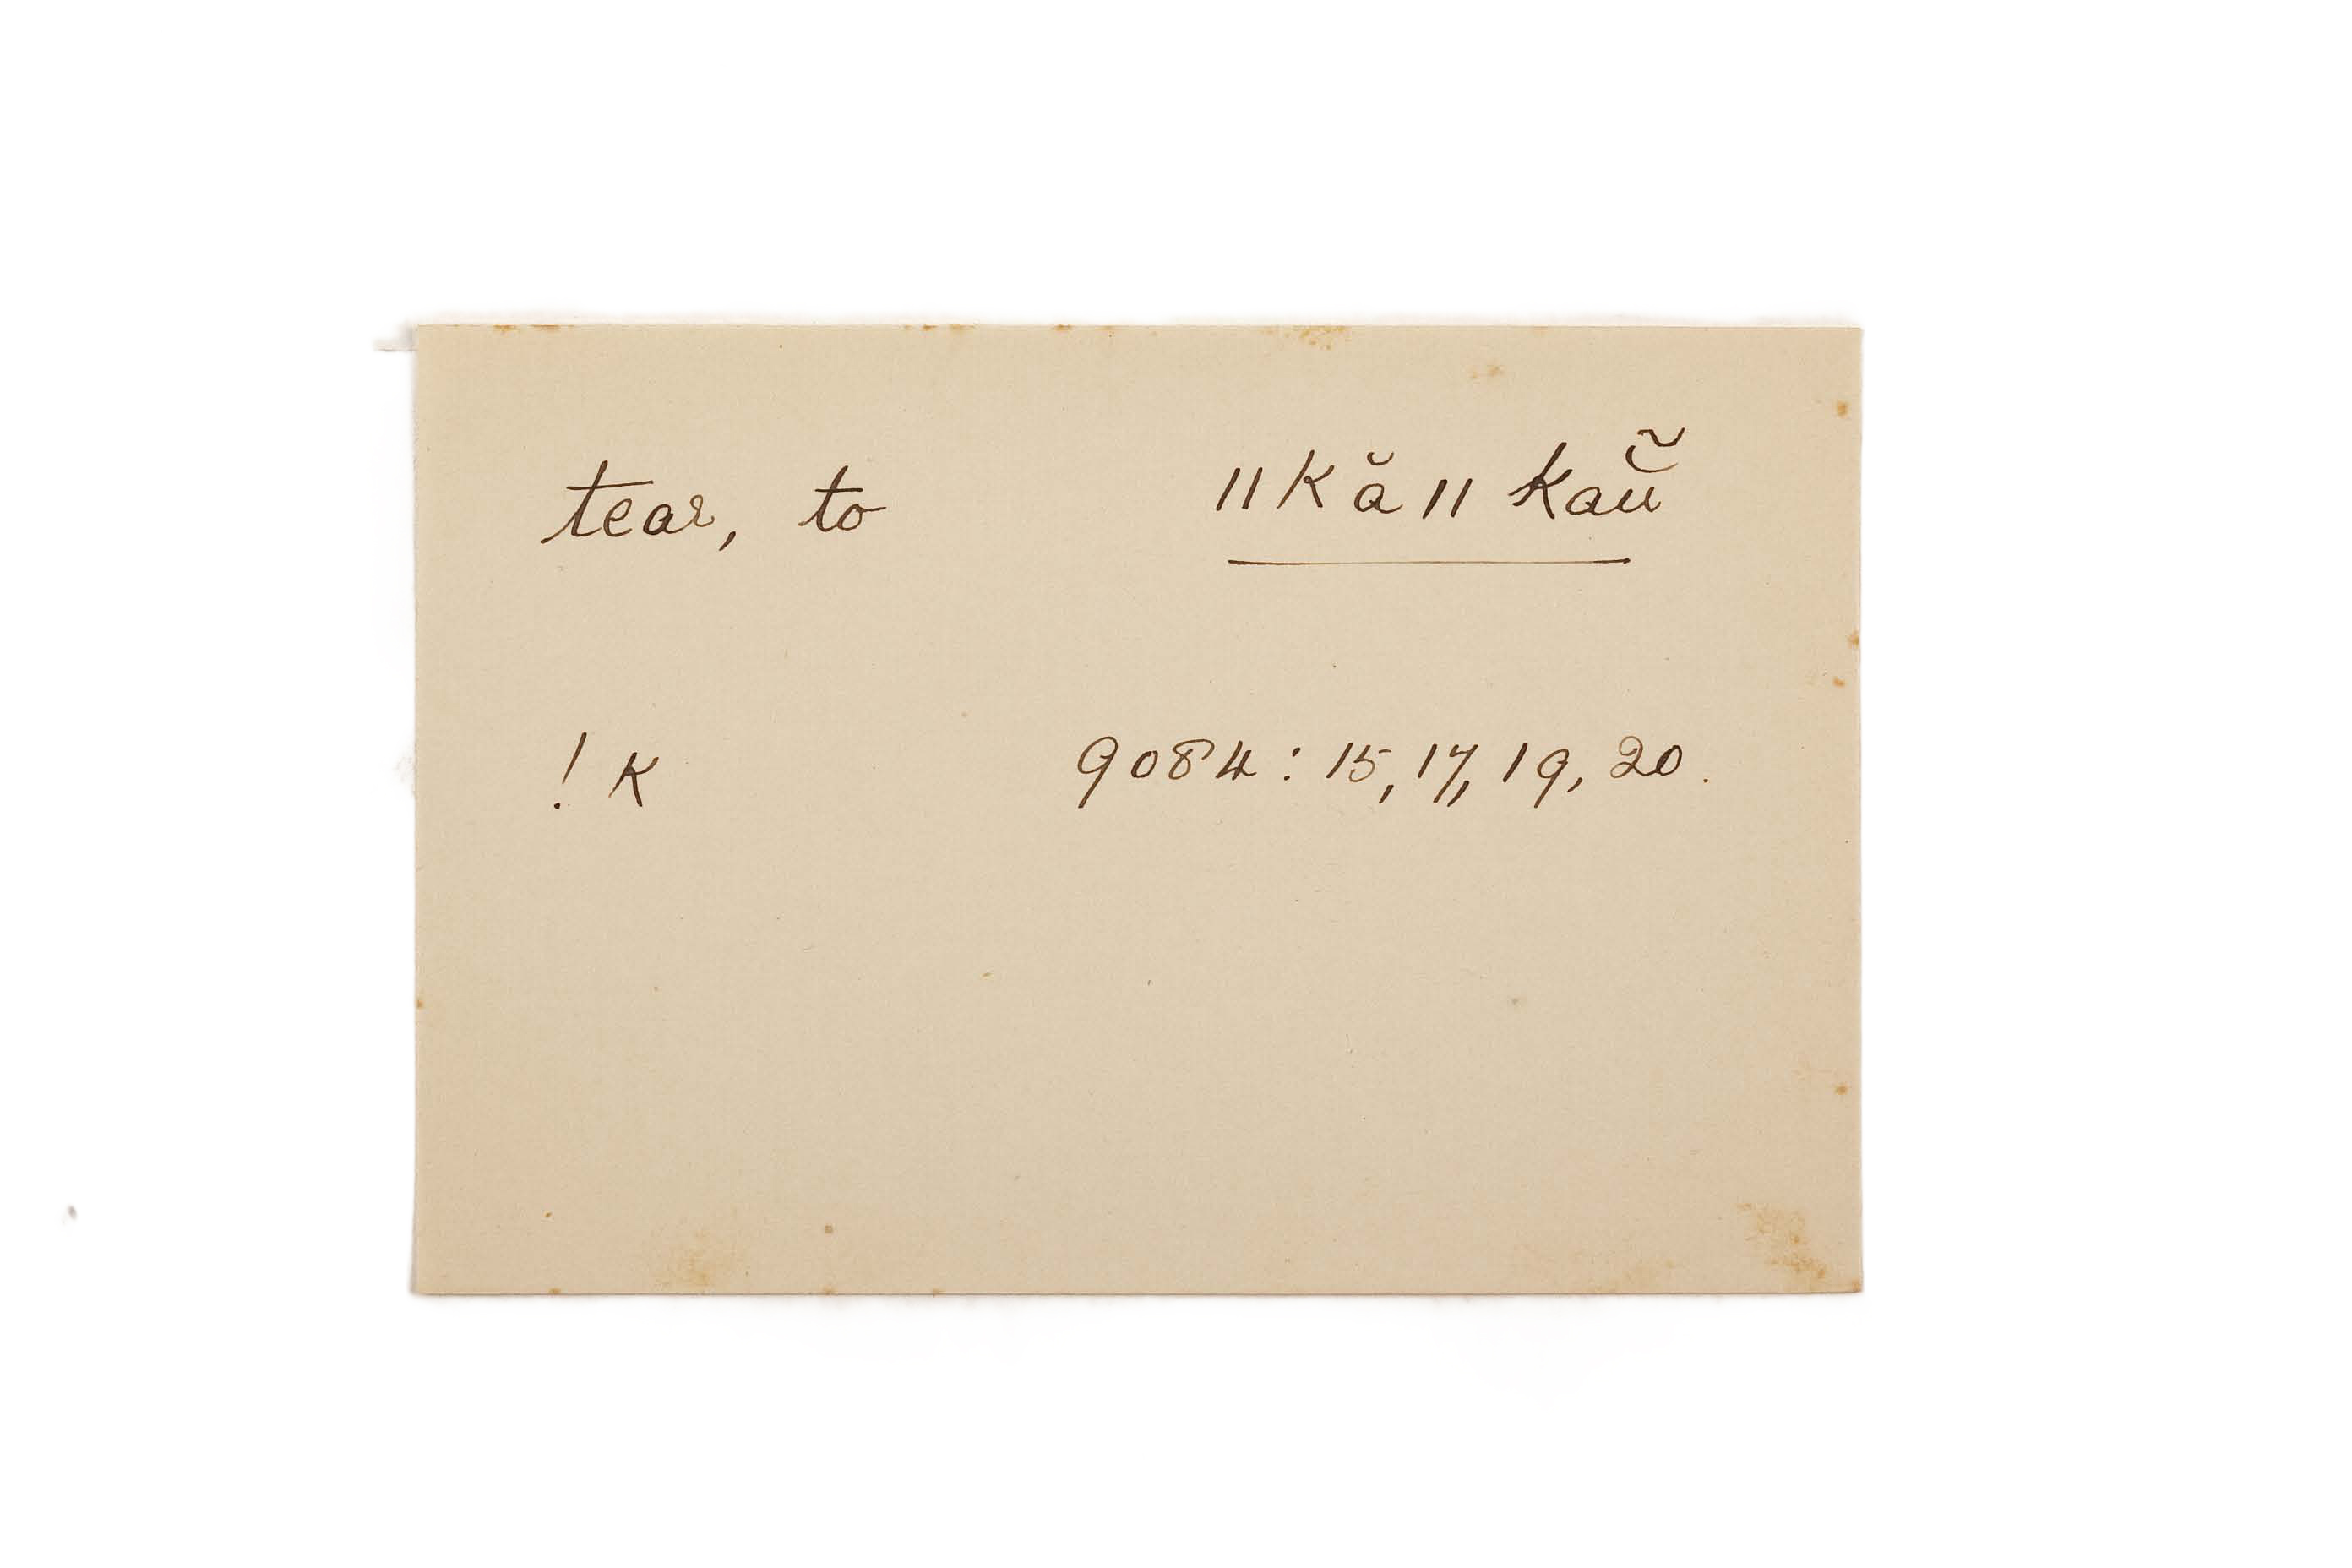 tear, to ǁkăǁkaŭ̃
!K 9084: 15, 17, 19, 20.